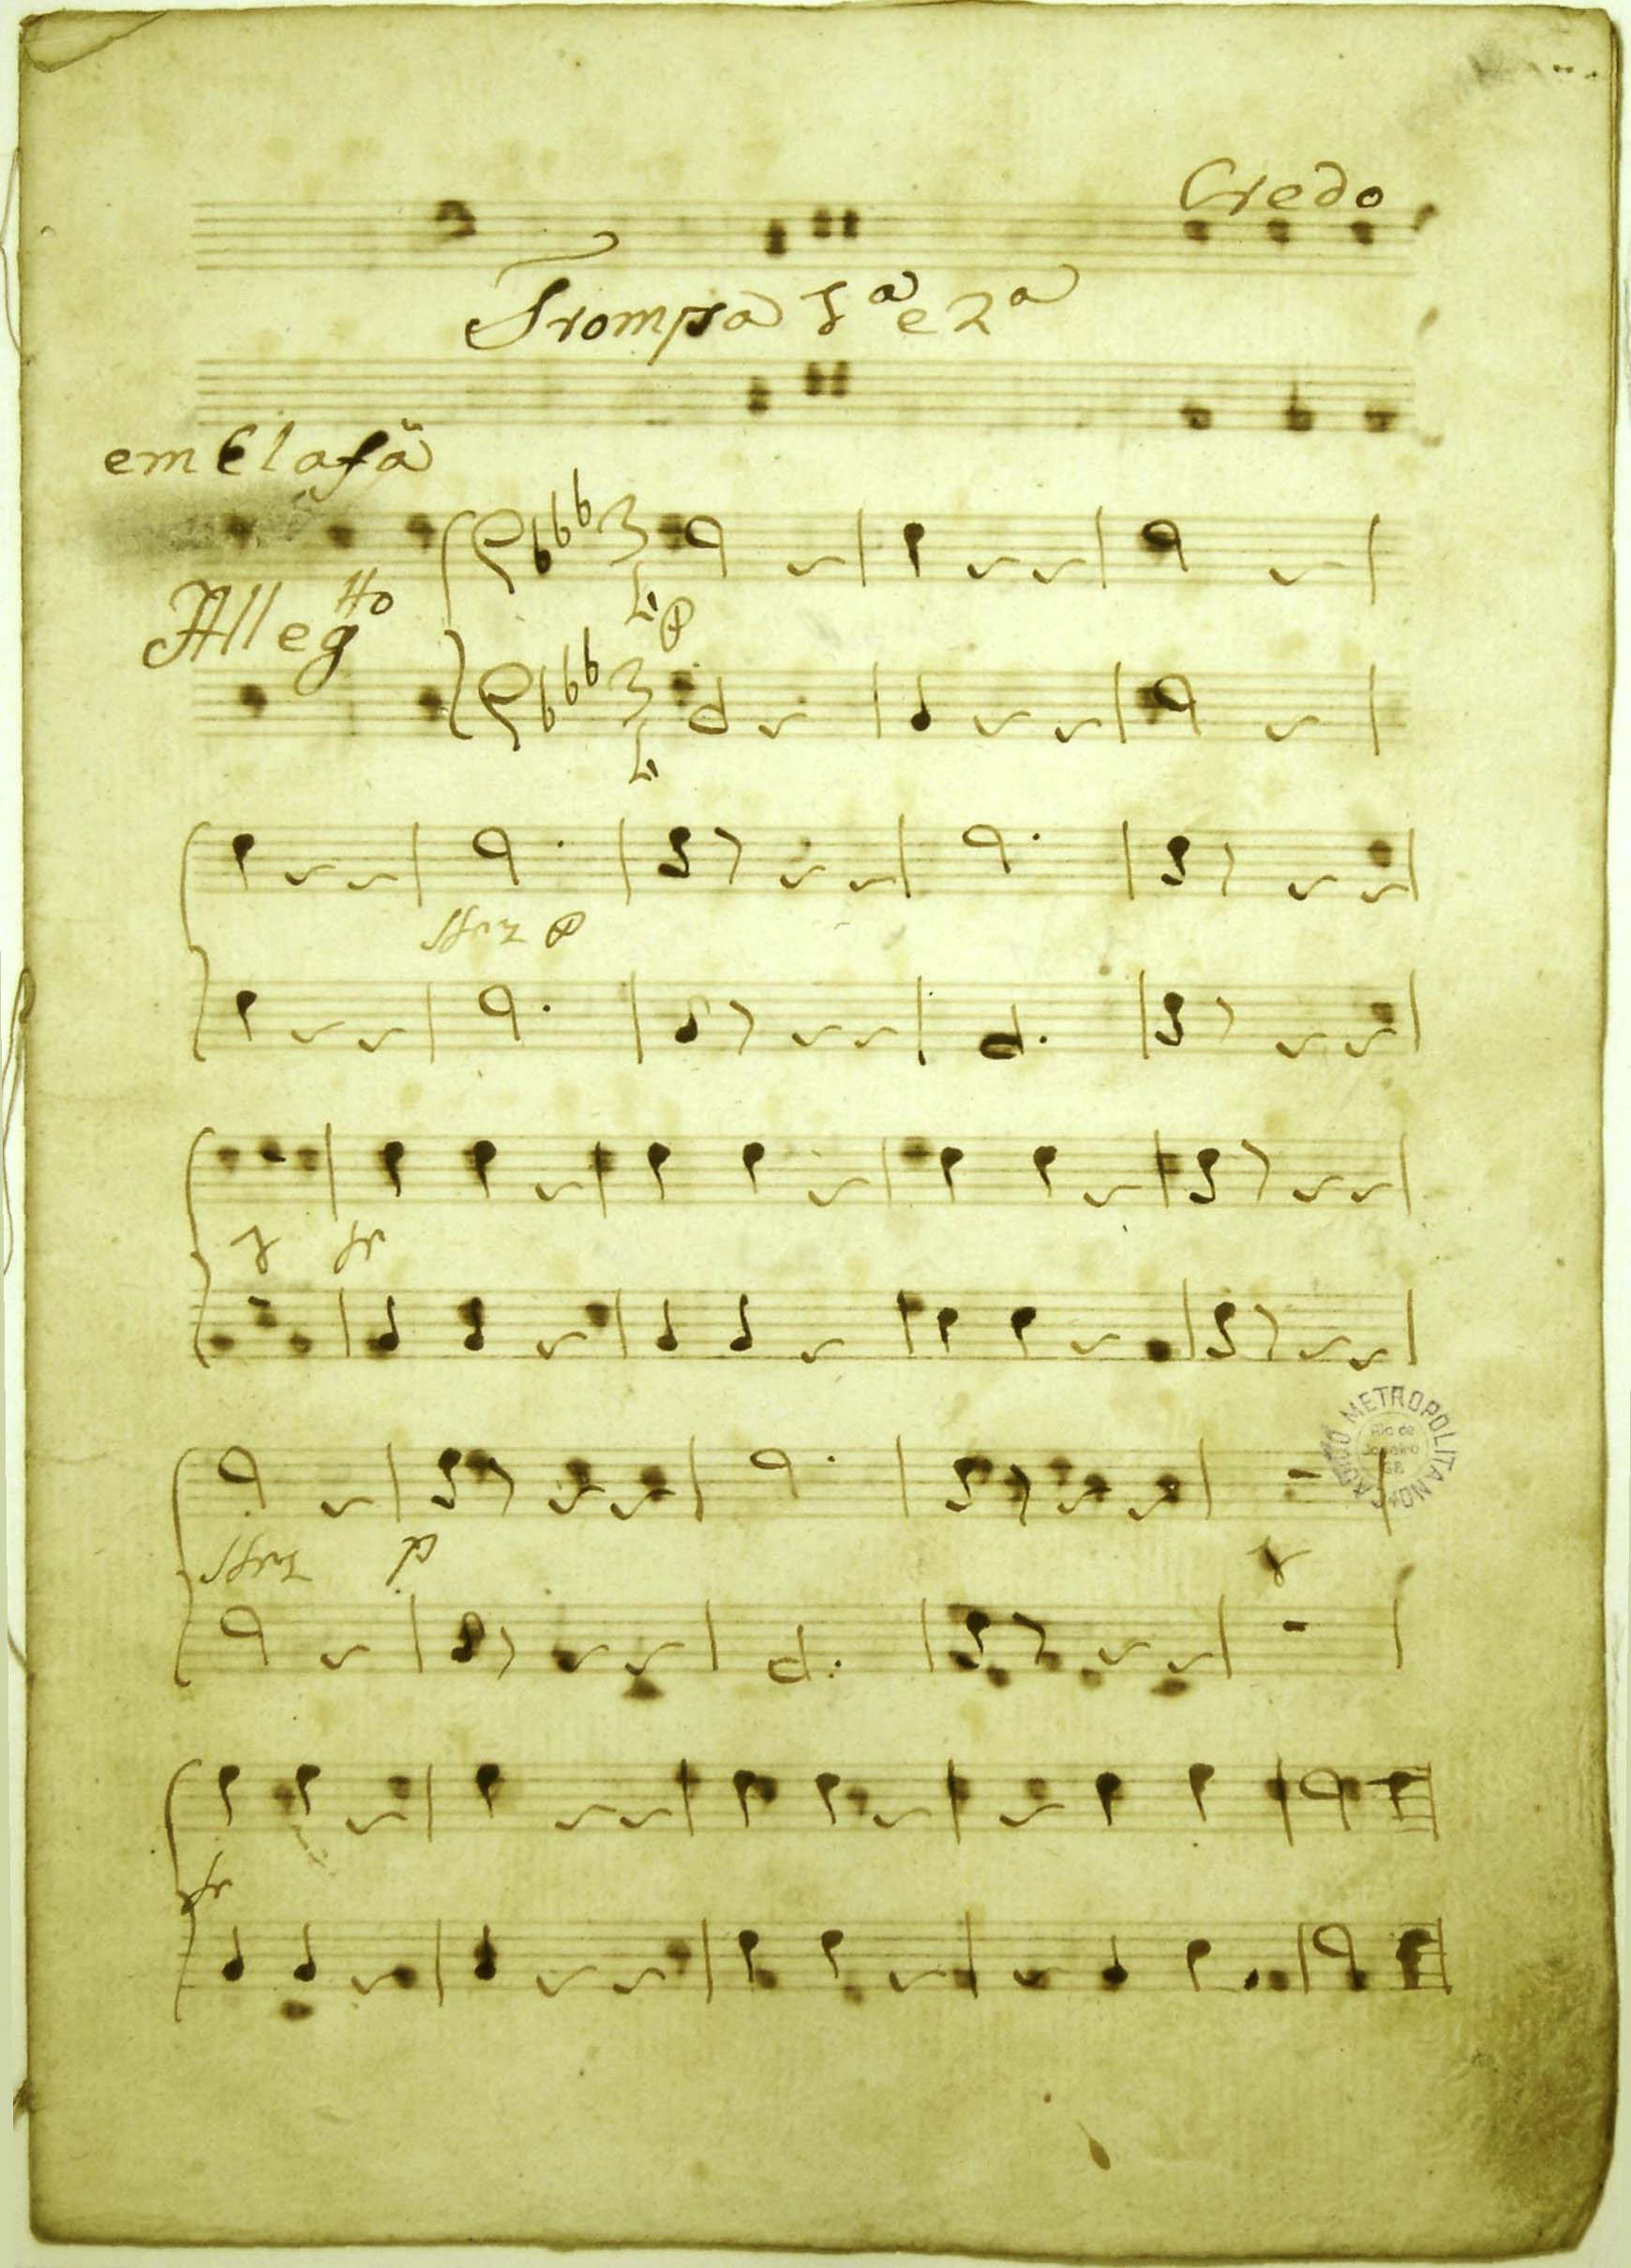 Credo
Trompa 1ª e 2ª
em Elafã
Allegtto
P
sfrz P
f fr
sfrz p f
fr
METROPOLITANO
Rio de
Janeiro